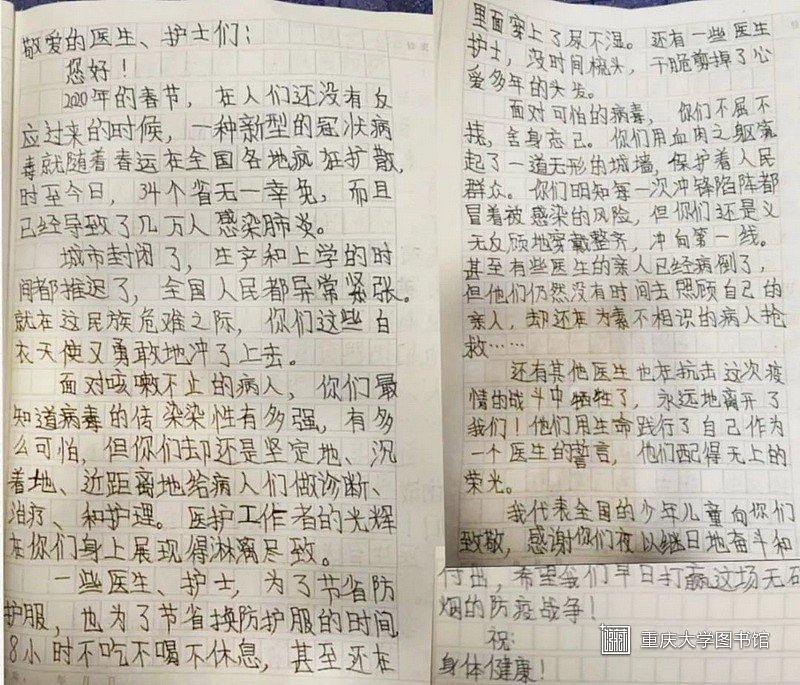 敬爱的医生、护士们：
您好！
2020年的春节，在人们还没有反
应过来的时候，一种新型的冠状病
毒就随着春运在全国各地疯狂扩散，
时至今日，34个省无一幸免，而且
已经导致了几万人感染肺炎。
城市封闭了，生产和上学的时
间都推迟了，全国人民都异常紧张。
就在这民族危难之际，你们这些白
衣天使又勇敢地冲了上去。
面对咳嗽不止的病人，你们最
知道病毒的传染染性有多强，有多
么可怕，但你们却还是坚定地、沉
着地、近距离地给病人们做诊断、
治疗、和护理。医护工作者的光辉
在你们身上展现得淋漓尽致。
一些医生、护士，为了节省防
护服，也为了节省换防护服的时间，
8小时不吃不喝不休息，甚至还在
里面穿上了尿不湿。还有一些医生
护士，没时间梳头，干脆剪掉了心
爱多年的头发。
面对可怕的病毒，你们不屈不
挠，舍身忘己。你们用血肉之躯筑
起了一道无形的城墙，保护着人民
群众。你们明知每一次冲锋陷阵都
冒着被感染的风险，但你们还是义
无反顾地穿戴整齐，冲向第一线。
甚至有些医生的亲人已经病倒了，
但他们仍然没有时间去照顾自己的
亲人，却还在为素不相识的病人抢
救……
还有其他医生也在抗击这次疫
情的战斗中牺牲了，永远地离开了
我们！他们用生命践行了自己作为
一个医生的誓言，他们配得无上的
荣光。
我代表全国的少年儿童向你们
致敬，感谢你们夜以继日地奋斗和
付出，希望我们早日打赢这场无硝
烟的防疫战争！
祝：
身体健康！
重庆大学图书馆